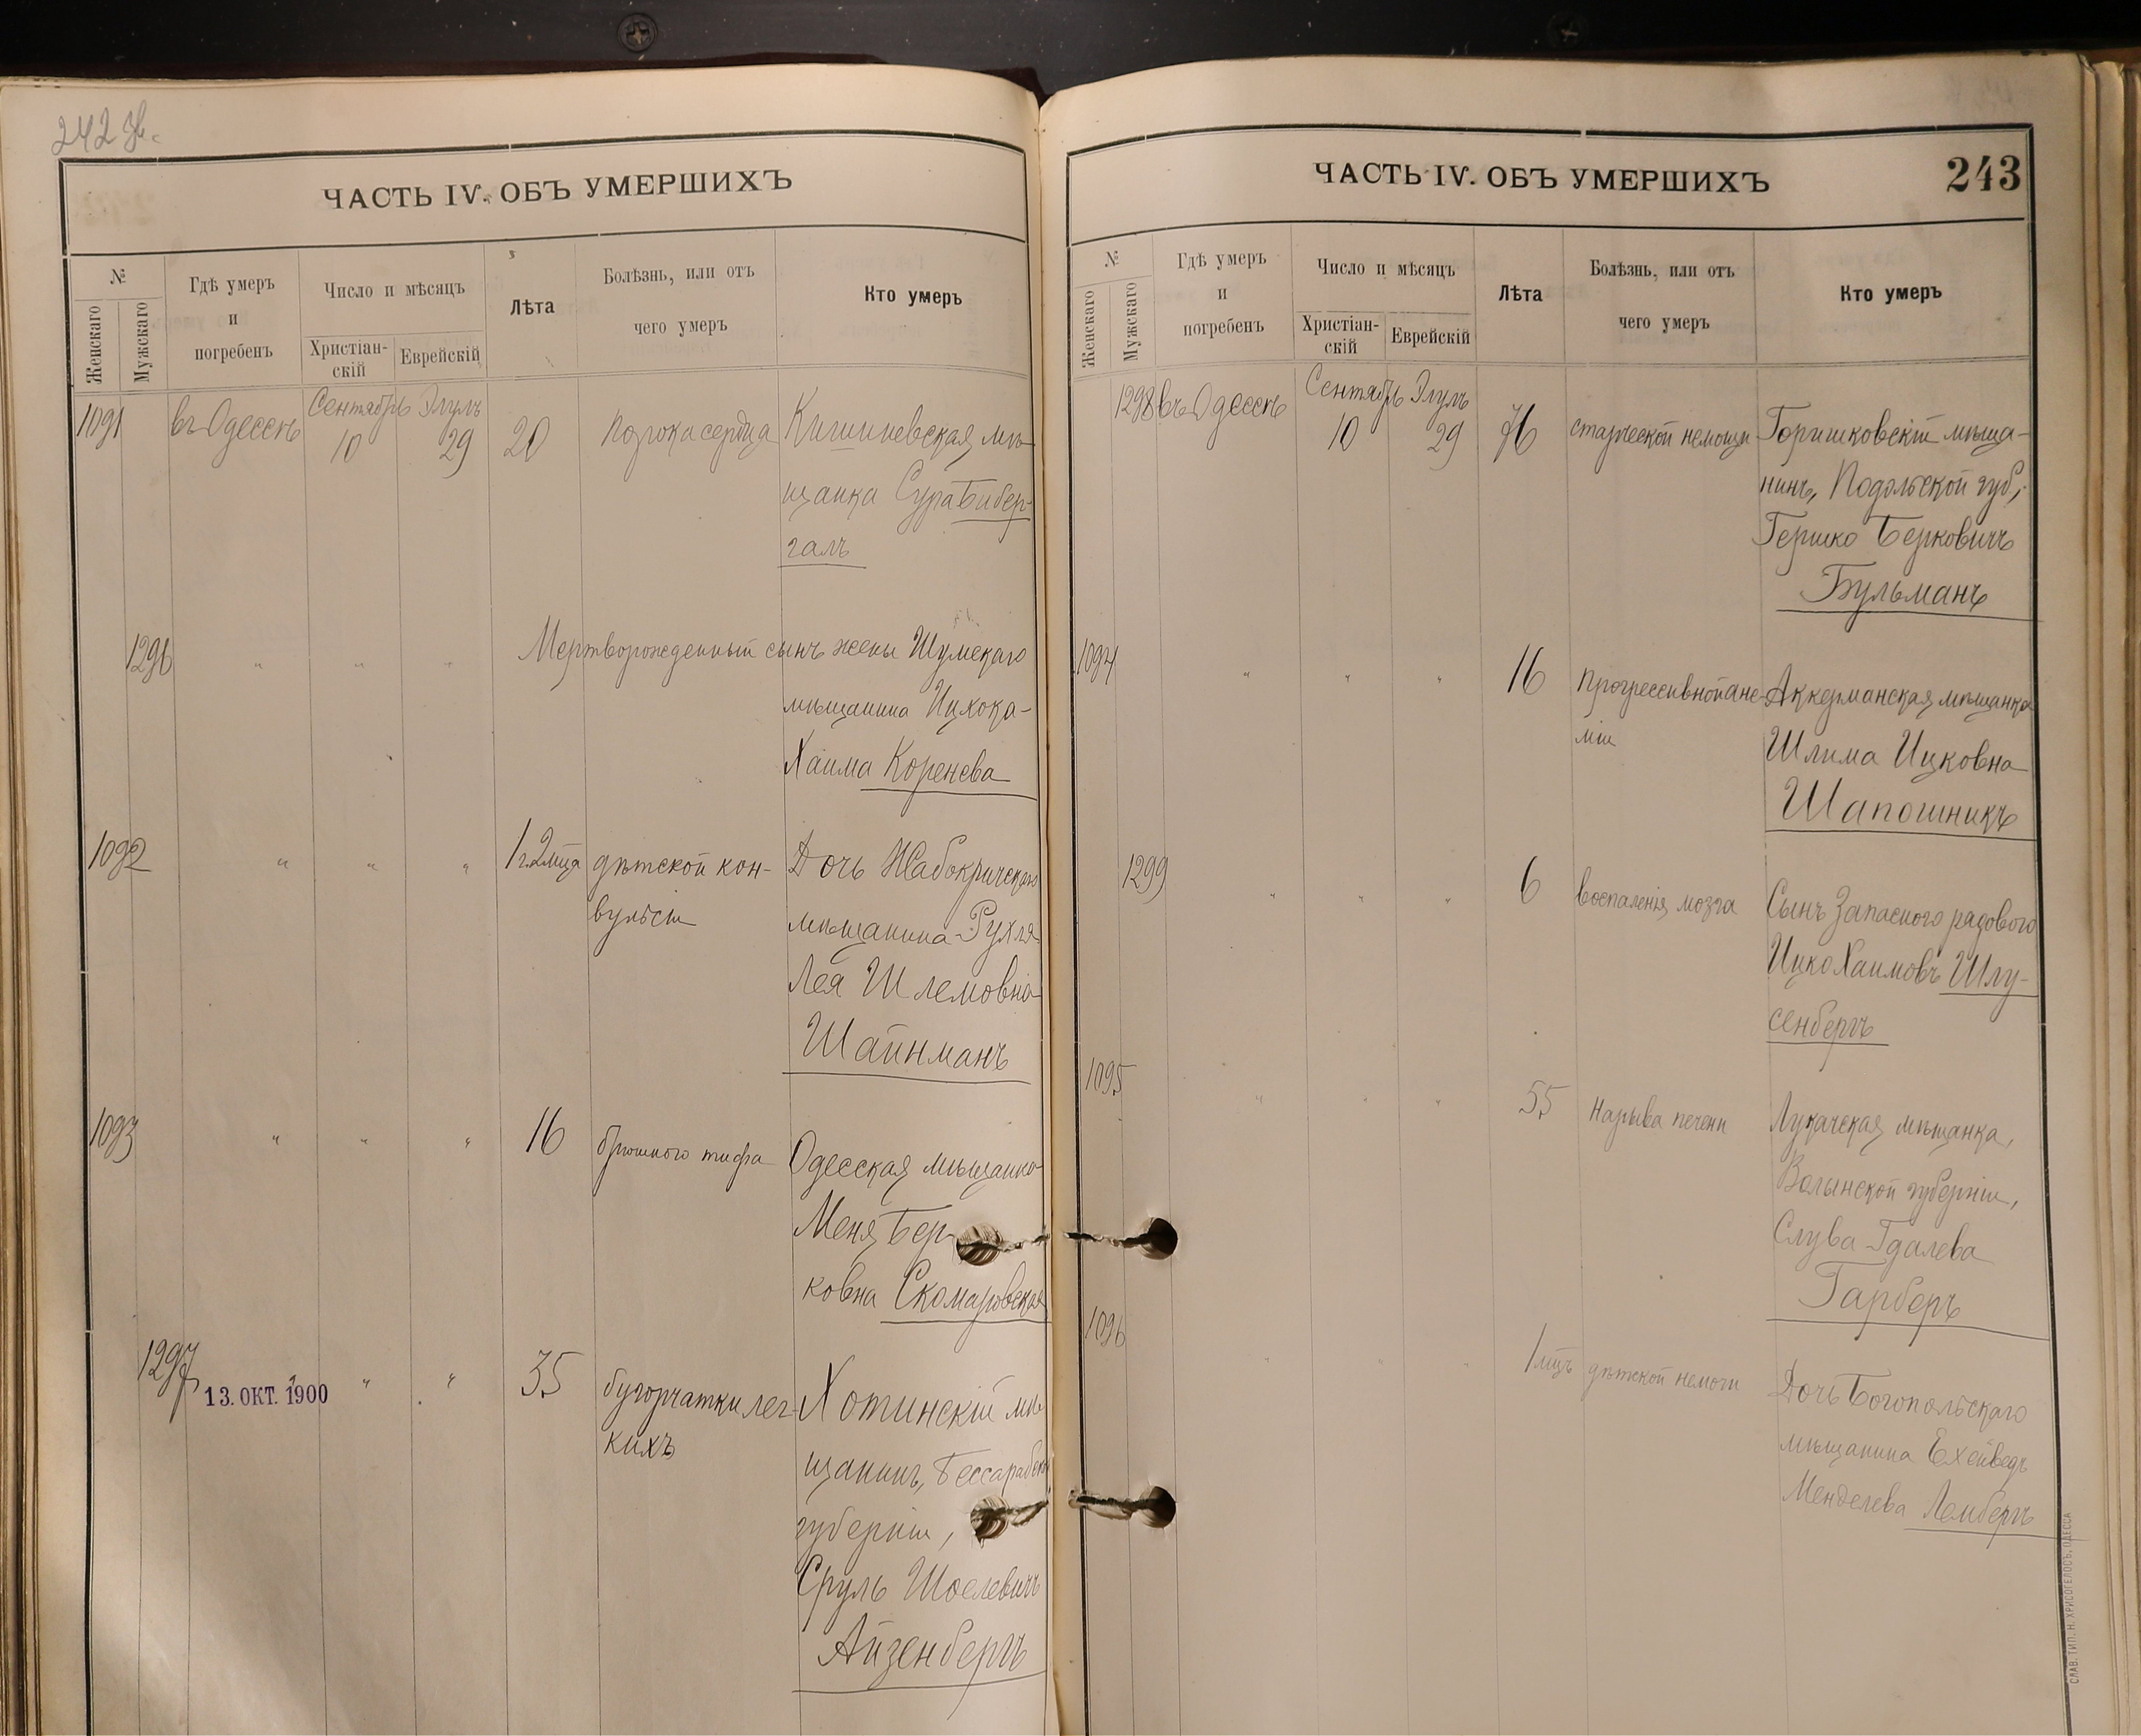 242 об.
ЧАСТЬ IV. ОБЪ УМЕРШИХЪ
№
Женскаго
Мужскаго
Гдѣ умеръ
и
погребенъ
Число и мѣсяцъ
Христіан-
скій
Еврейскій
Лѣта
Болѣзнь, или отъ
чего умеръ
Кто умеръ
1091 въ Одессѣ Сентябрь 10 Элулъ 29 20 порока сердца Кишиневская мѣ-
щанка Сура Бибер-
галъ
1296 " " " Мертворожденный сынъ жены Шумскаго
мѣщанина Ицхока-
Хаима Коренева
1092 " " " 1 г. 2 мца дѣтской кон- Дочь Жабокричскаго
вульсіи мѣщанина Рухля
Лея Шлемовна
Шайнманъ
1093 " " " 16 брюшного тифа Одесская мѣщанка
Меня Бер-
ковна Скомаровская
1297 " " " 35 бугорчатки лег- Хотинскій мѣ-
13. ОКТ. 1900
кихъ щанинъ, Бессарабск.
губерніи,
Сруль Шоелевичъ
Айзенбергъ
ЧАСТЬ IV. ОБЪ УМЕРШИХЪ
243
№
Женскаго
Мужскаго
Гдѣ умеръ
и
погребенъ
Число и мѣсяцъ
Христіан-
скій
Еврейскій
Лѣта
Болѣзнь, или отъ
чего умеръ
Кто умеръ
1298 въ Одессѣ Сентябрь 10 Элулъ 29 76 старческой немощи Горишковскій мѣща-
нинъ, Подольской губ.,
Гершко Берковичъ
Бульманъ
1094 " " " 16 прогрессивной ане- Аккерманская мѣщанка
міи Шлима Ицковна
Шапошникъ
1299 " " " 6 воспаленія мозга Сынъ Запасного рядового
Ицко Хаимовъ Шлу-
сенбергъ
1095 " " " 55 Нарыва печени Лукачская мѣщанка,
Волынской губерніи,
Слува Гдалева
Гарберъ
1096 " " " 1 мцъ дѣтской немочи Дочь Богопольскаго
мѣщанина Ехейведъ
Менделева Лембергъ
СЛАВ. ТИП. Н. ХРИСОГЕЛОСЪ. ОДЕССА